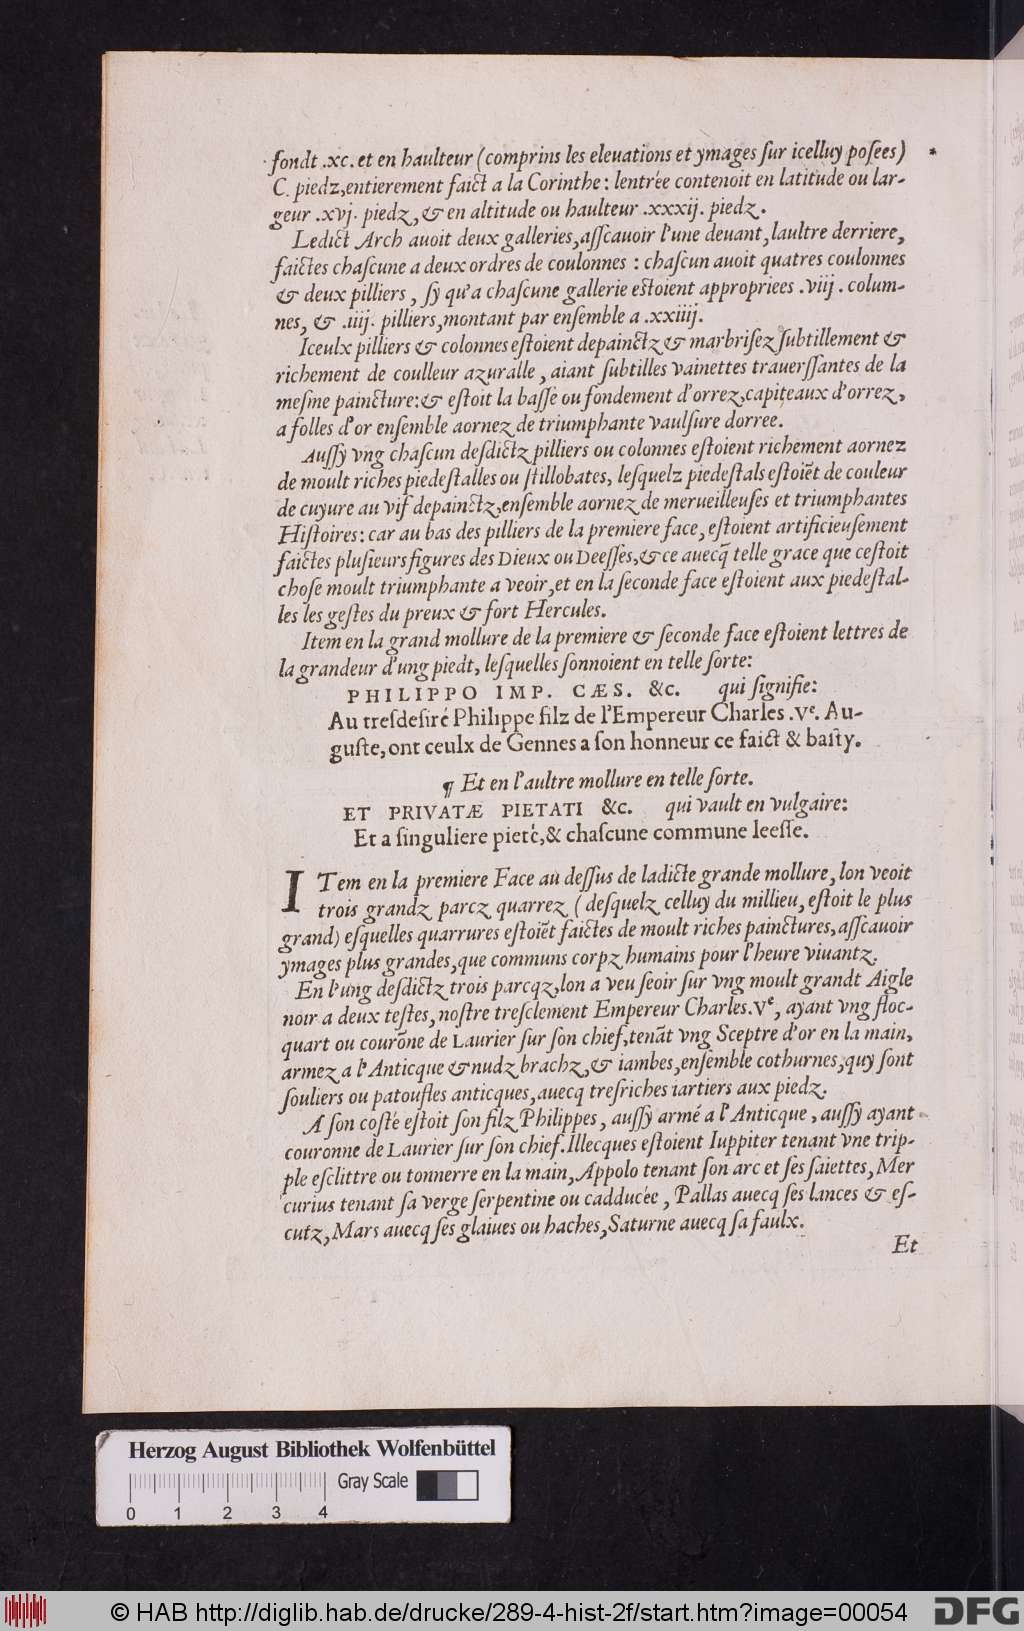 fondt .xc. et en haulteur (comprins les eleuations et ymages sur icelluy posees)
C. piedz, entierement faict a la Corinthe: lentrée contenoit en latitude ou lar-
geur .xvj. piedz, & en altitude ou haulteur .xxxij. piedz.
Ledict Arch auoit deux galleries, asscauoir l'une deuant, laultre derriere,
faictes chascune a deux ordres de coulonnes : chascun auoit quatres coulonnes
& deux pilliers, sy qu'a chascune gallerie estoient appropriees .viij. colum-
nes, & .iiij. pilliers, montant par ensemble a .xxiiij.
Iceulx pilliers & colonnes estoient depainctz & marbrisez subtillement &
richement de coulleur azuralle, aiant subtilles vainettes trauerssantes de la
mesme paincture: & estoit la basse ou fondement d'orrez, capiteaux d'orrez,
a folles d'or ensemble aornez de triumphante vaulsure dorree.
Aussy vng chascun desdictz pilliers ou colonnes estoient richement aornez
de moult riches piedestalles ou stillobates, lesquelz piedestals estoiēt de couleur
de cuyure au vif depainctz, ensemble aornez de merueilleuses et triumphantes
Histoires: car au bas des pilliers de la premiere face, estoient artificieusement
faictes plusieurs figures des Dieux ou Deesses, & ce auecq̃ telle grace que cestoit
chose moult triumphante a veoir, et en la seconde face estoient aux piedestal-
les les gestes du preux & fort Hercules.
Item en la grand mollure de la premiere & seconde face estoient lettres de
la grandeur d'ung piedt, lesquelles sonnoient en telle sorte:
PHILIPPO IMP. CÆS. &c. qui signifie:
Au tresdesiré Philippe filz de l'Empereur Charles .Ve. Au-
guste, ont ceulx de Gennes a son honneur ce faict & basty.
¶ Et en l'aultre mollure en telle sorte.
ET PRIVATÆ PIETATI &c. qui vault en vulgaire:
Et a singuliere pieté, & chascune commune leesse.
ITem en la premiere Face au dessus de ladicte grande mollure, lon veoit
trois grandz parcz quarrez (desquelz celluy du millieu, estoit le plus
grand) esquelles quarrures estoiēt faictes de moult riches painctures, asscauoir
ymages plus grandes, que communs corpz humains pour l'heure viuantz.
En l'ung desdictz trois parcqz, lon a veu seoir sur vng moult grandt Aigle
noir a deux testes, nostre tresclement Empereur Charles .Ve, ayant vng floc-
quart ou courōne de Laurier sur son chief, tenāt vng Sceptre d'or en la main,
armez a l'Anticque & nudz brachz, & iambes, ensemble cothurnes, quy sont
souliers ou patoufles anticques, auecq tresriches iartiers aux piedz.
A son costé estoit son filz Philippes, aussy armé a l'Anticque, aussy ayant
couronne de Laurier sur son chief. Illecques estoient Iuppiter tenant vne trip-
ple esclittre ou tonnerre en la main, Appolo tenant son arc et ses saiettes, Mer
curius tenant sa verge serpentine ou cadducée, Pallas auecq ses lances & es-
cutz, Mars auecq ses glaiues ou haches, Saturne auecq sa faulx.
Et
Herzog August Bibliothek Wolfenbüttel
Gray Scale
0 1 2 3 4
© HAB http://diglib.hab.de/drucke/289-4-hist-2f/start.htm?image=00054
DFG